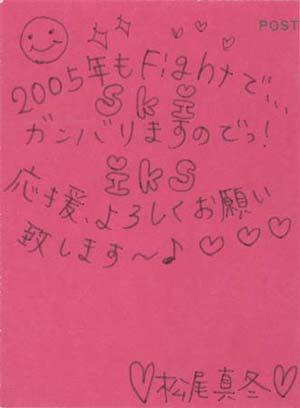 POST
2005年もFightで、、、
SKI
ガンバリますのでっ!
IKS
応援、よろしくお願い
致します〜♪♡♡♡
♡松尾真冬♡